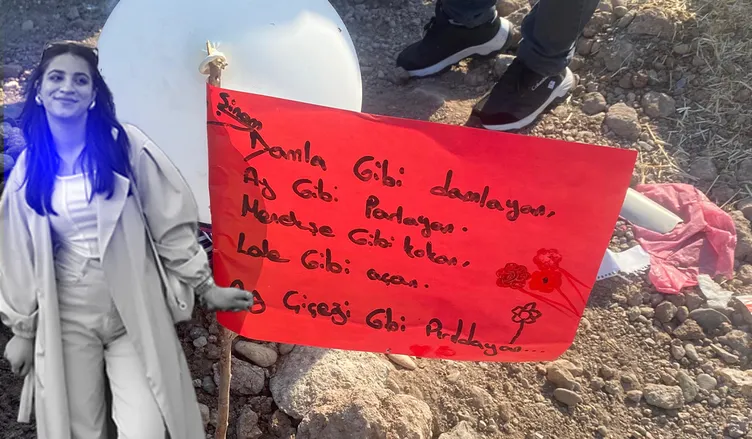 Sinem
Damla Gibi damlayan,
Ay Gibi Parlayan.
Menekşe Gibi kokan,
Lale Gibi açan.
Ay Çiçeği Gibi Pırıldayan...